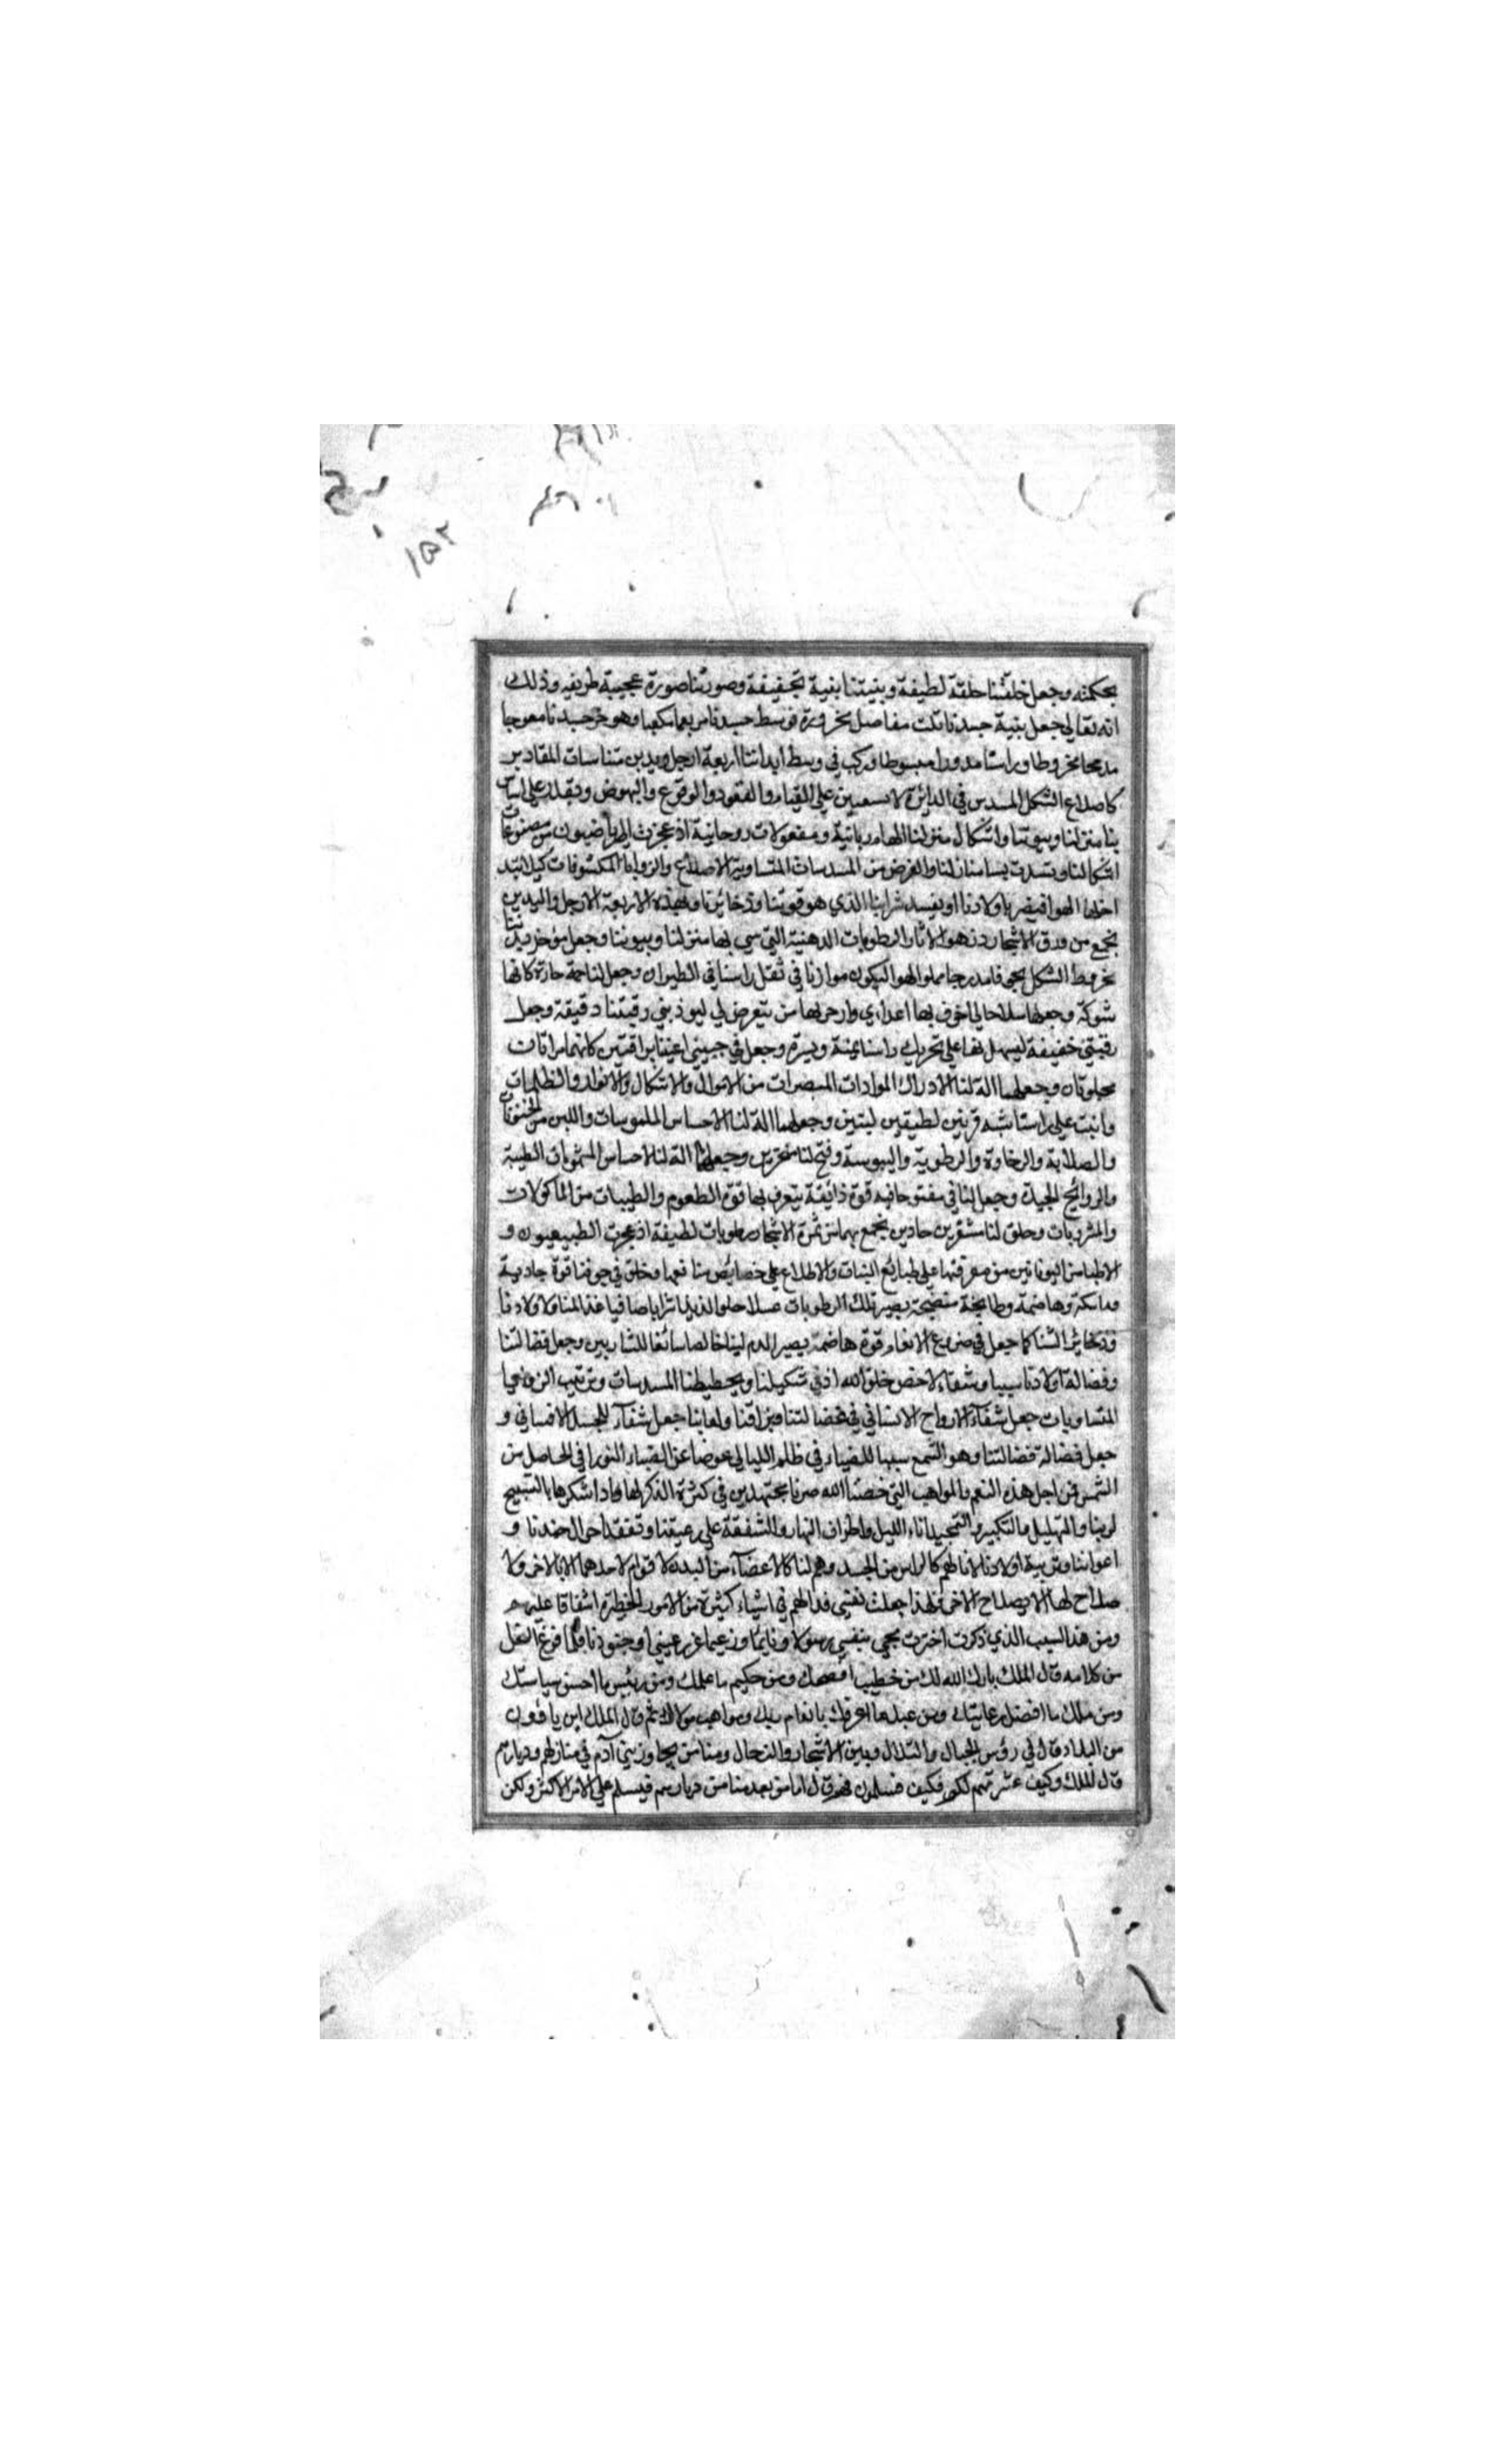 ١٥٢
بحكمته وجعل خلقتنا خلقة لطيفة وبنيتنا بنية نحيفة وصورتنا صورة عجيبة طريفه وذلك
انه تعالي جعل بنية جسدنا ثلث مفاصل مخروزة فوسط جسدنا مربعا مكعبا وموخر جسدنا معوجا
مدمجا مخروطا وراسنا مدورا مبسوطا وركب في وسط ابداننا اربعة ارجل ويدين متناسبات المقادير
كاضلاع الشكل المسدس في الدائرة لاستعين علي القيام والقعود والوقوع والنهوض ونقدر علي اساس
بنا منزلنا وبيوتنا واشكال منزلنا الهام ربانية ومفعولات روحانية اذ عجزت الرياضيون من مصنوعات
اشكالنا المسدسات المتساوية الاضلاع والزوايا المكشوفات كيلا
الهوا فيضر باولادنا او يفسد شرابنا الذي هو قوتنا وذخائرنا وبهذه الاربعة الارجل واليدين
نجمع من ورق الاشجار وزهر الاثار الرطوبات الدهنية التي بها منزلنا وبيوتنا وجعل موخر بدننا
مخروط الشكل مجوفا مدرجا مملوا هوا ليكون موازنا في ثقل راسنا في الطيران وجعل لنا حمة حارة كانها
شوكة وجعلها سلاحا لي اخوف بها اعداي وارحز بها من يتعرض لي ليوذيني رقبتنا دقيقة وجعل
رقبتي خفيفة ليسهل بها علي تحريك راسنا يمنة ويسرة وجعل في جبيني اعينا براقتين كانهما مراتان
مجلوتان وجعلهما الة لنا لادراك الموادات المبصرات من الالوان والاشكال والانوار والظلمات
وانبت علي راسنا شبه قرنين لطيفين لينين وجعلهما الة لنا لاحساس الملموسات واللين من الخشونات
والصلابة والرخاوة والرطوبة واليبوسة وفتح لنا منخرين وجعلهما الة لنا لاحساس المشمومات الطيبة
والروائح الجيدة وجعل لنا فما مفتوحا فيه قوة ذائقة يتعرف بها قوة الطعوم والطيبات من الماكولات
والمشروبات وخلق لنا مشفرين حادين نجمع بهما من ثمرة الاشجار رطوبات لطيفة اذ عجزت الطبيعيون و
الاطبا من اليونانيين من معرفتها علي طبائع النبات والاطلاع علي خصائص منافعها وخلق في جوفنا قوة جاذبة
وماسكة وهاضمة وطابخة منضجة يصير تلك الرطوبات عسلا حلوا لذيذا شرابا صافيا غذا لنا ولاولادنا
وذخائر لشتنا كما جعل في ضروع الانعام قوة هاضمة يصير الدم لبنا خالصا سائغا للشاربين وجعل فضالتنا
وفضالة اولادنا سببا وشفاء لاخص خلق الله اذ في تشكيلنا وتخطيطنا المسدسات وترتيب الزوايا
المتساويات جعل شفاء الارواح الانساني في فضالتنا ولعابنا جعل شفاء للجسد الانساني و
جعل فضالة فضالتنا وهو الشمع سببا للضياء في ظلم الليالي عوضا عن الضياء النوراني الحاصل من
الشمس فمن اجل هذه النعم والمواهب التي خصنا الله صرنا مجتهدين في كثرة الذكر لها واداء شكرها بالتسبيح
لربنا والتهليل والتكبير والتمجيد اناء الليل واطراف النهار والشفقة علي رعيتنا وتفقد احوال جندنا و
اعواننا وتربية اولادنا لانا لهم كالراس من الجسد وهم لنا كالاعضاء من البدن لا قوام لاحدهما الا بالاخر ولا
صلاح لها الا بصلاح الاخر فلهذا جعلت نفسي فدا لهم في اشياء كثيرة من الامور الخطيرة اشفاقا عليهم
ومن هذا السبب الذي ذكرت اخترت مجيي بنفسي رسولا ونايبا وزعيما عن رعيتي وجنودنا فلما فرغ النحل
من كلامه قال الملك بارك الله لك من خطيب ما افصحك ومن حكيم ما اعلمك ومن رئيس ما احسن سياستك
ومن ملك ما افضل رعايتك ومن عبد ما اعرفك بانعام ربك ومواهب مولاك ثم قال الملك اين يافون
من البلاد قال في رؤس الجبال والتلال وبين الاشجار والدحال ومنا من يجاور بني آدم في منازلهم وديارهم
قال الملك وكيف عشرتهم لكم فكيف تسلمون منهم قال اما من بعد منا من ديارهم فيسلم علي الامر الاكثر ولكن